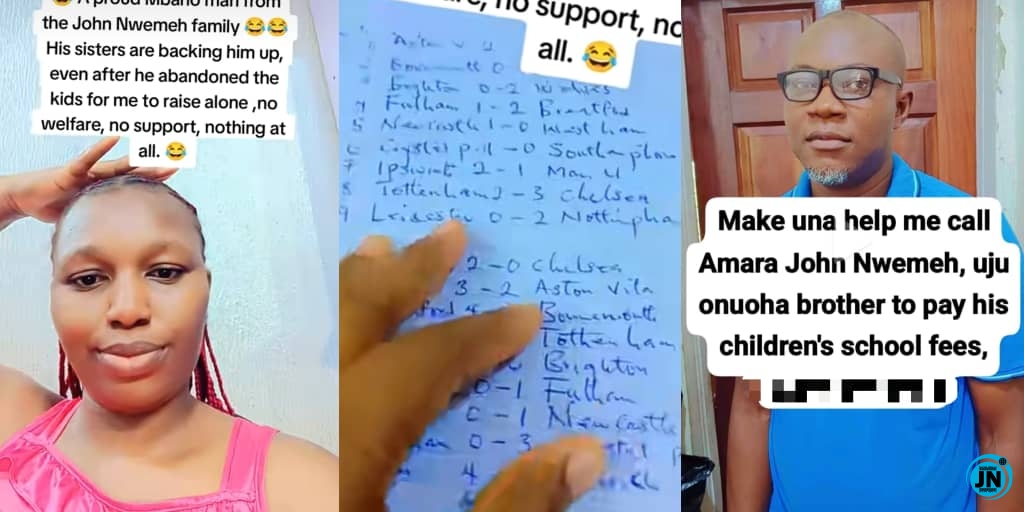 😂 A proud Mbano man from
the John Nwemeh family 😂😂
His sisters are backing him up,
even after he abandoned the
kids for me to raise alone ,no
welfare, no support, nothing at
all. 😂
no support, no
all. 😂
Aston V 2
0
Brighton 0-2 Wolves
Fulham 1-2 Brentford
5 Newcastle 1-0 West ham
0 Southampton
7 Ipswich 2-1 Man U
8 Tottenham 2-3 Chelsea
9 Leicester 0-2
2-0 Chelsea
3-2 Aston Vila
Bournemouth
Tottenham
Brighton
0-1 Fulham
0-1 Newcastle
0-3
4
Make una help me call
Amara John Nwemeh, uju
onuoha brother to pay his
children's school fees,
JN